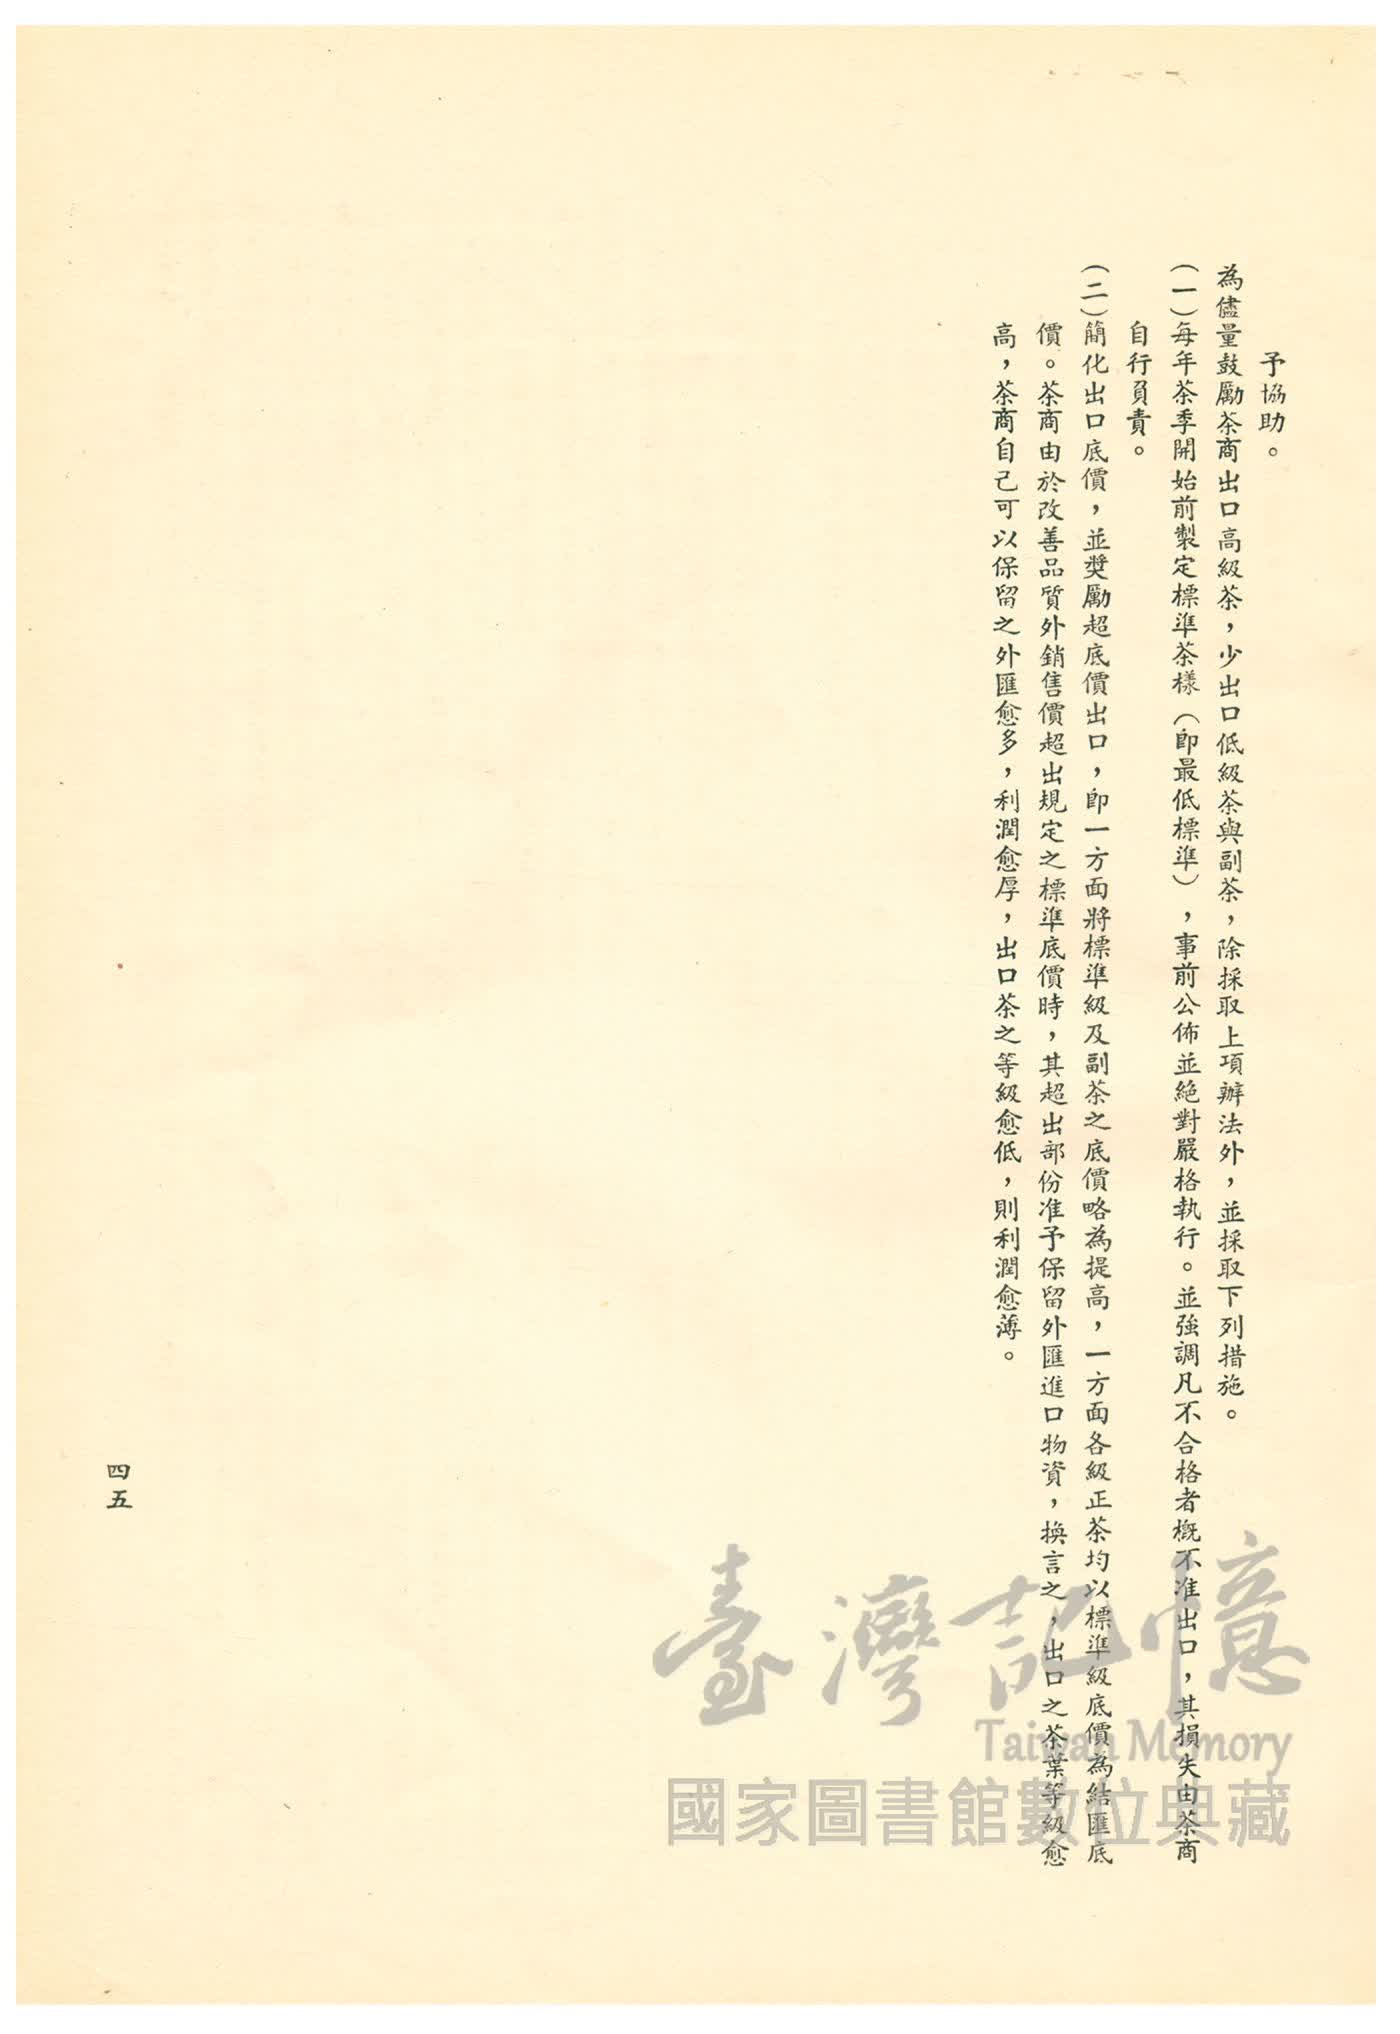 予協助。
為儘量鼓勵茶商出口高級茶，少出口低級茶與副茶，除採取上項辦法外，並採取下列措施。
（一）每年茶季開始前製定標準茶樣（即最低標準），事前公佈並絕對嚴格執行。並強調凡不合格者概不准出口，其損失由茶商
自行負責。
（二）簡化出口底價，並獎勵超底價出口，即一方面將標準級及副茶之底價略為提高，一方面各級正茶均以標準級底價為結匯底
價。茶商由於改善品質外銷售價超出規定之標準底價時，其超出部份准予保留外匯進口物資，換言之，出口之茶葉等級愈
高，茶商自己可以保留之外匯愈多，利潤愈厚，出口茶之等級愈低，則利潤愈薄。
四五
臺灣記憶
Taiwan Memory
國家圖書館數位典藏